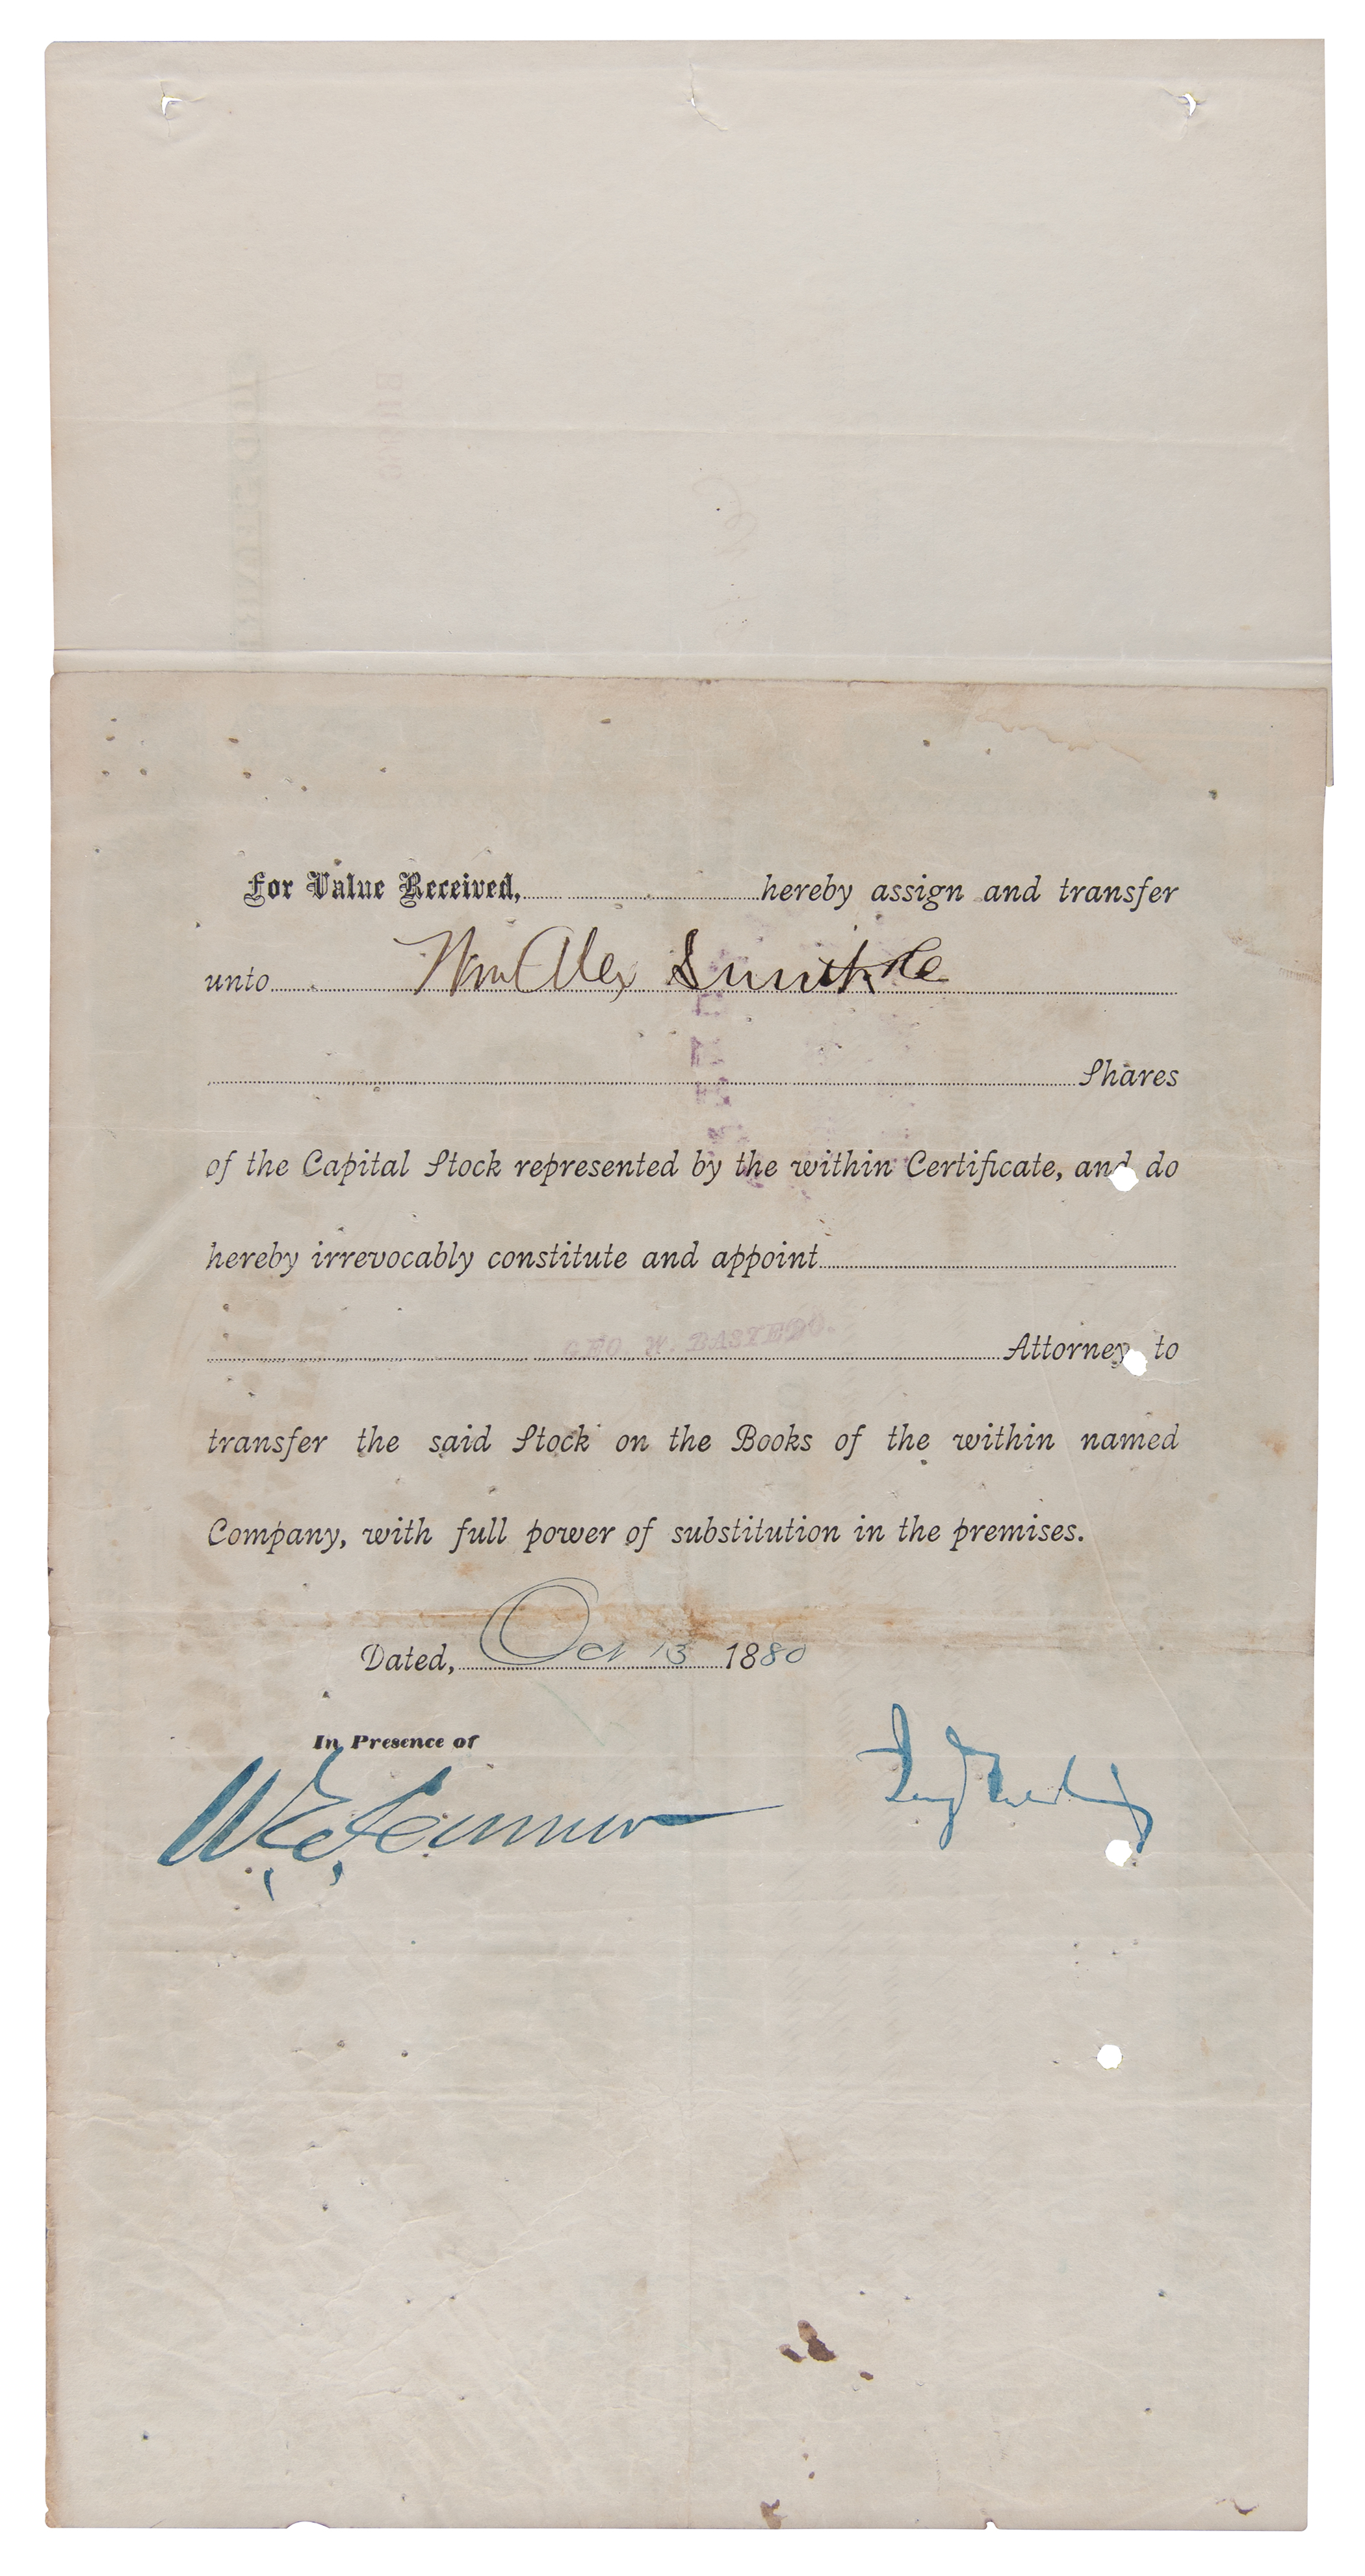 For Value Received, hereby assign and transfer
unto Wm Alex Smith &Co
Shares
of the Capital Stock represented by the within Certificate, and do
hereby irrevocably constitute and appoint
GEO. W. BASTEDO.
Attorney to
transfer the said Stock on the Books of the within named
Company, with full power of substitution in the premises.
Dated, Oct 13 1880
In Presence of